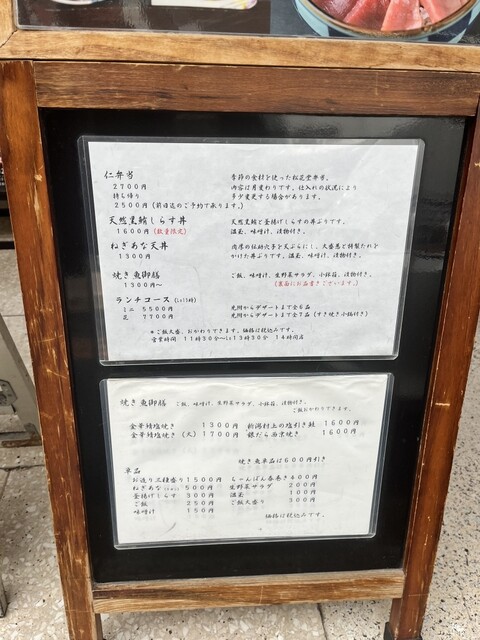 仁弁当
2700円
持ち帰り
2500円(前日迄のご予約で承ります。)
季節の食材を使った松花堂弁当。
内容は月変わりです。仕入れの状況により
多少変更する場合があります。
天然黒鮪しらす丼
1600円(数量限定)
天然黒鮪と釜揚げしらすの丼ぶりです。
温菜、味噌汁、漬物付き。
ねぎあな天丼
1500円
肉厚の伝助穴子を天ぷらにし、大葱と特製たれを
かけた丼ぶりです。温菜、味噌汁、漬物付き。
焼き魚御膳
1300円~
ご飯、味噌汁、生野菜サラダ、小鉢、漬物付き。
(裏面にお品書きございます。)
ランチコース(Lo13時)
ミニ 5500円
花 7700円
先附からデザートまで全6品
先附からデザートまで全7品(すき焼き小鍋付き)
*ご飯大盛、おかわりできます。価格は税込みです。
営業時間 11時30分~Lo13時30分 14時閉店
焼き魚御膳 ご飯、味噌汁、生野菜サラダ、小鉢、漬物付き。
ご飯おかわりできます。
金華鯖塩焼き 1300円
金華鯖塩焼き(大) 1700円
新潟村上の塩引き鮭 1600円
銀だら西京焼き 1600円
焼き魚単品は600円引き
単品
お造り三種盛り 1500円
ねぎあな 500円
釜揚げしらす 300円
ご飯 250円
味噌汁 150円
らーんぱん春巻き 400円
生野菜サラダ 200円
温菜 100円
ご飯大盛り 300円
価格は税込みです。